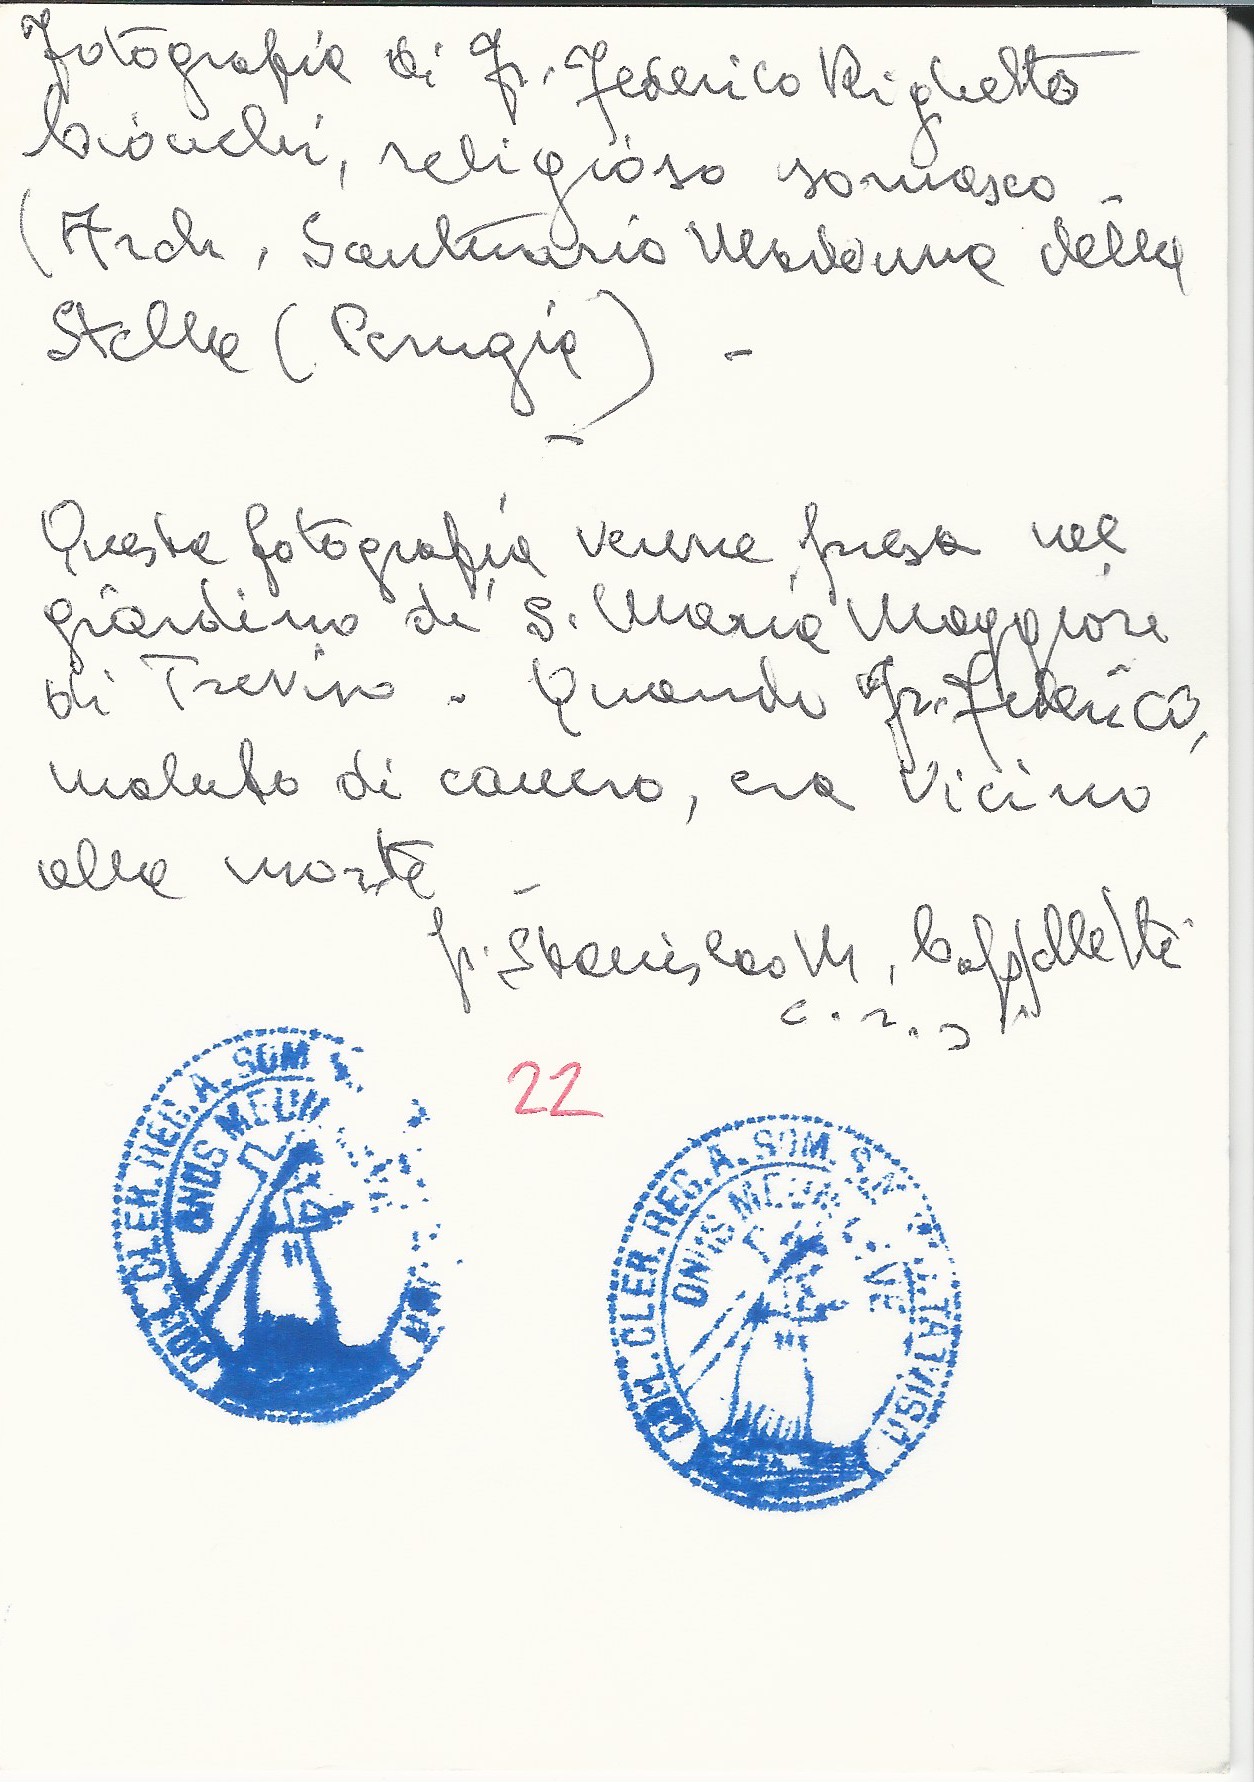 Fotografia di Fr. Federico Righetto
Cionchi, religioso somasco -
(Arch. Santuario Madonna della
Stella (Perugia) -
Questa fotografia venne presa nel
giardino di S. Maria Maggiore
di Treviso. Quando Fr. Federico,
malato di cancro, era vicino
alla morte -
p. Stanislao M. Cappelletti
c. r. s.
22
CLER. REG. A. SOM.
ONUS MEUM
CLER. REG. A. SOM. TARVISII
ONUS MEUM VE